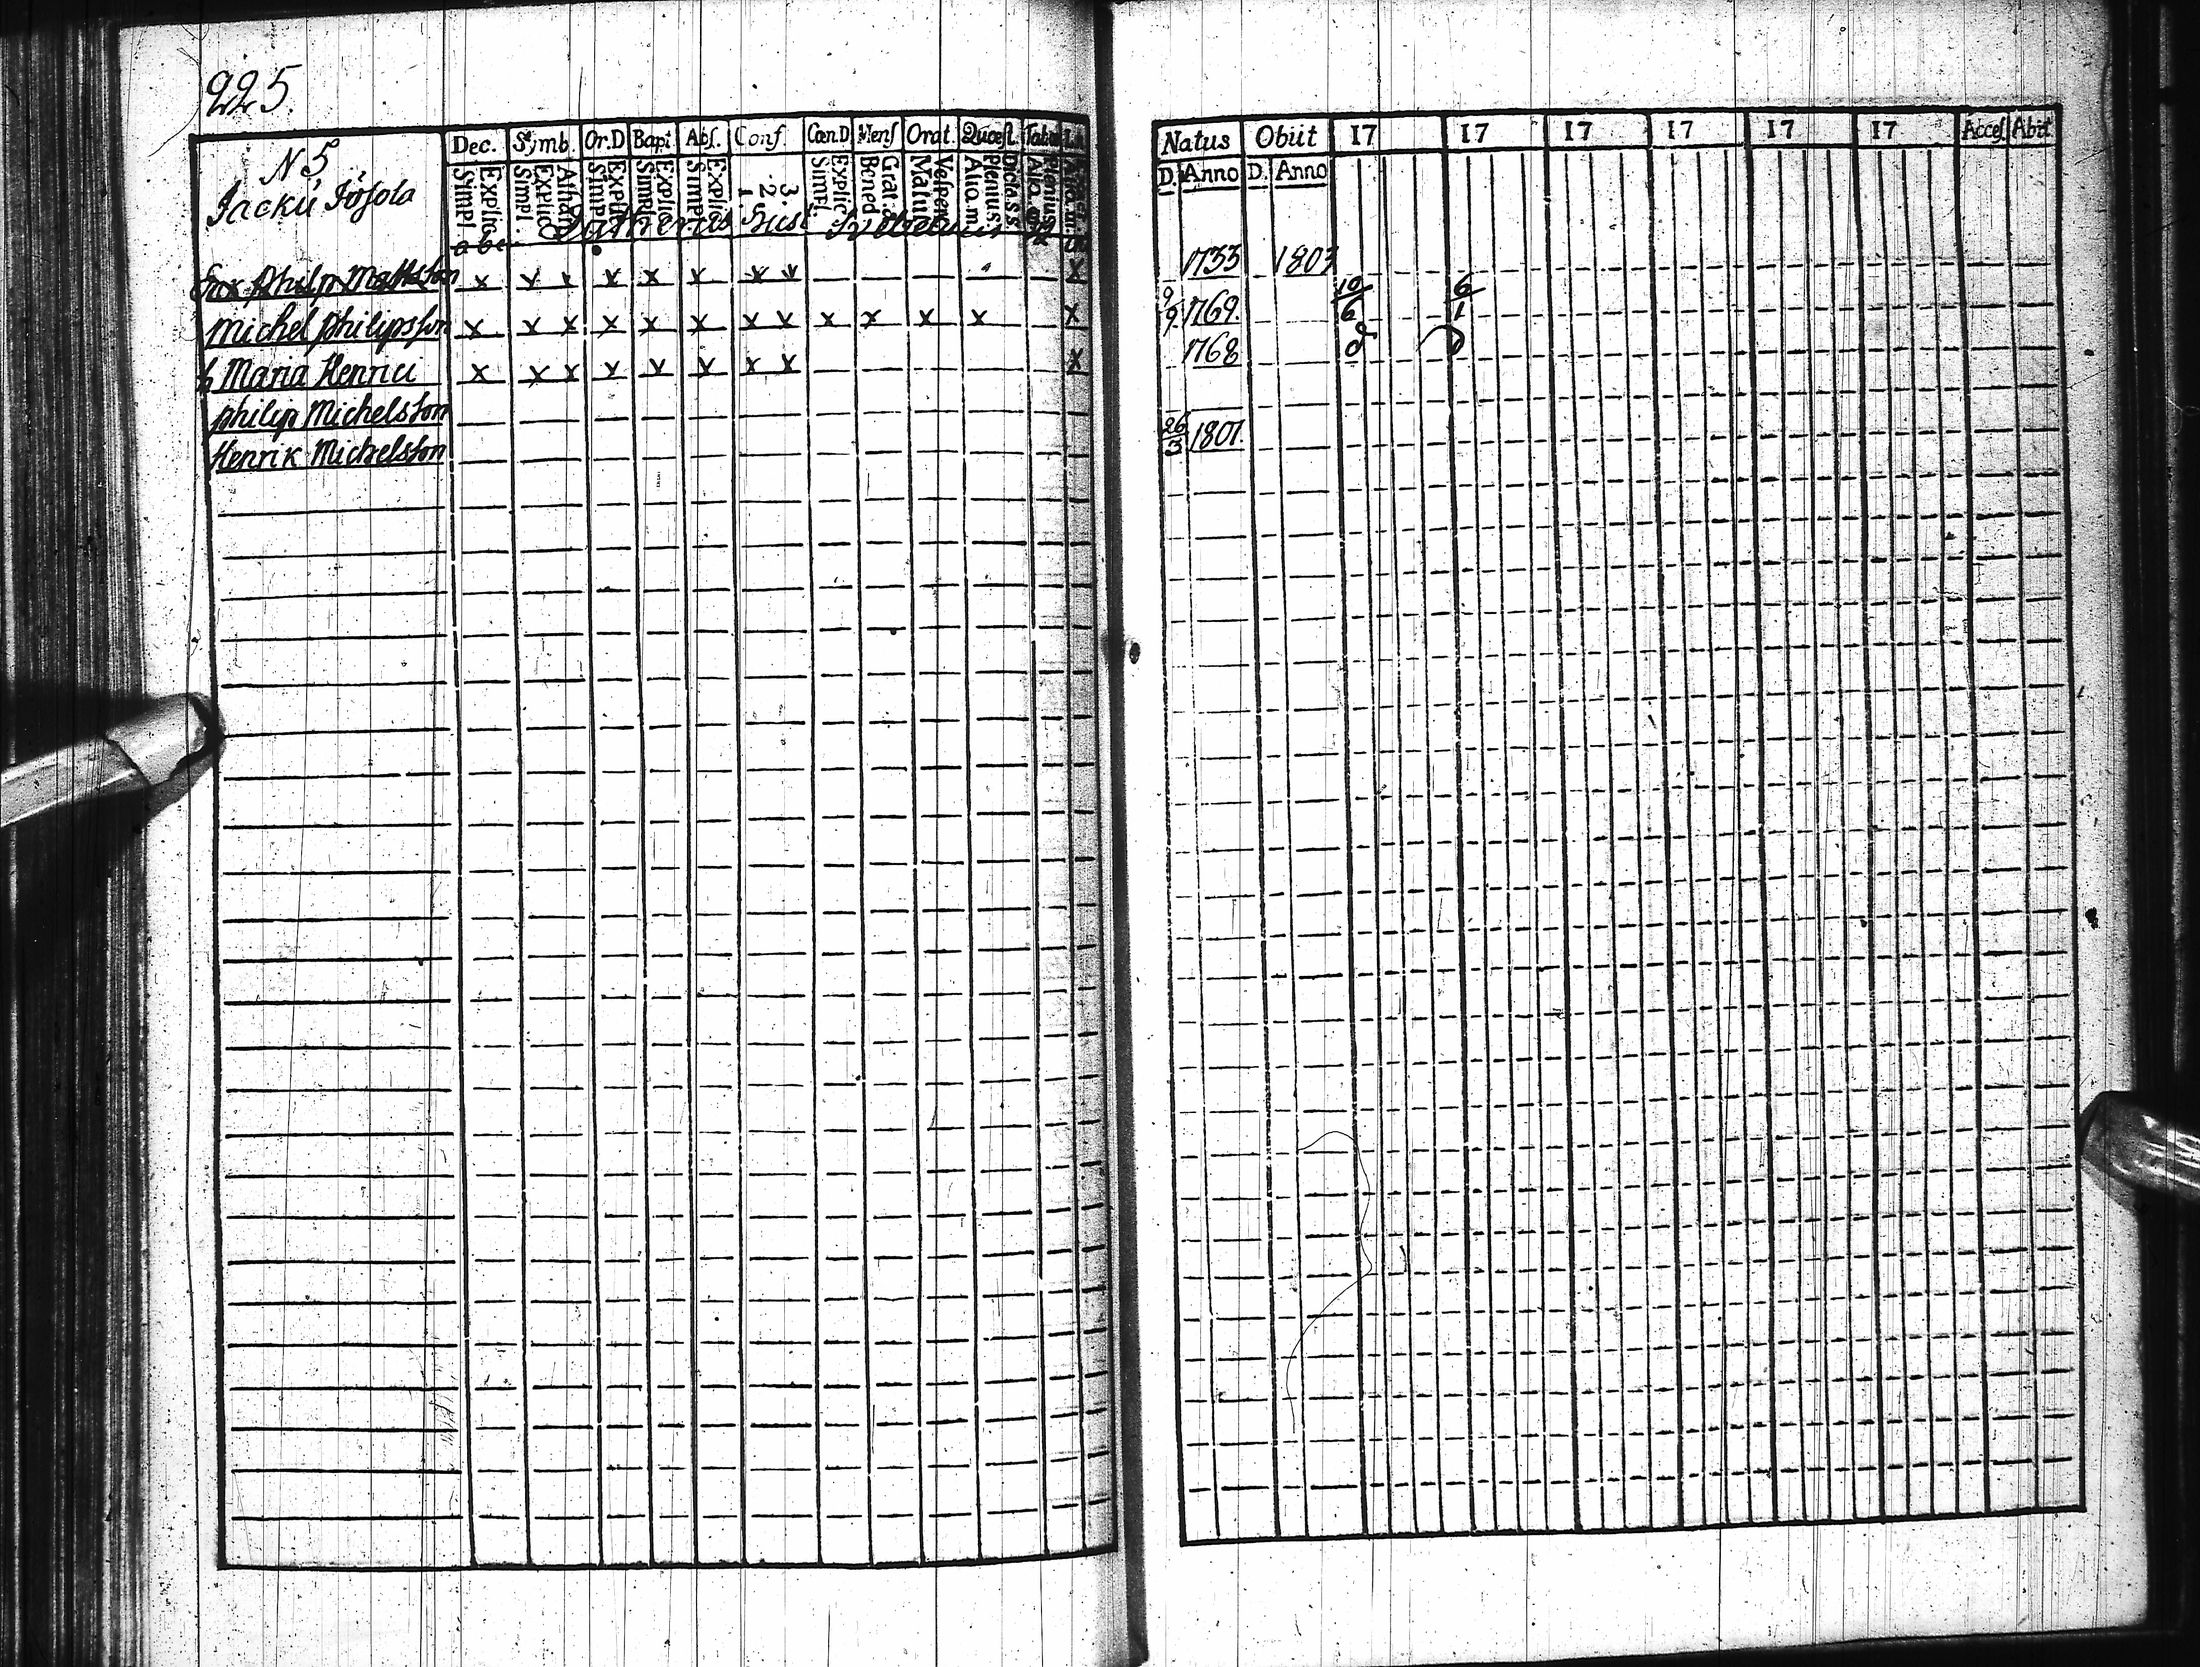 225.
Dec. Symb. Or.D Bapt. Abs. Conf. Cœn.D Mens Orat. Quæst. Tabul
N 5
Simpl. Explic. Simpl. Explic. Athan. Simpl. Explic. Simpl. Explic. Simpl. Explic. 1. 2. 3. Simpl. Explic. Bened. Grat. a. Matut. Vesper. Alio. m. Plenius. Dicta. s s. Alio. m Plenius
a b c Lutherus Hust Svebelius
Philip Mattsson x x x x x x x x x
Michel Philipsson x x x x x x x x x x x x x
h Maria Henrici x x x x x x x x x
Philip Michelsson
Henrik Michelsson
Natus Obiit 17 17 17 17 17 17 Acces. Abit
D. Anno D. Anno
1733 1803
9/9 1769. 10/6 6/1
1768
26/3 1801.